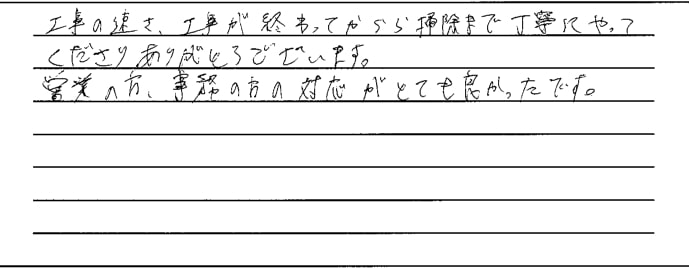 工事の速さ、工事が終わってからら掃除まで丁寧にやって
くださりありがとうございます。
営業の方、事務の方の対応がとても良かったです。